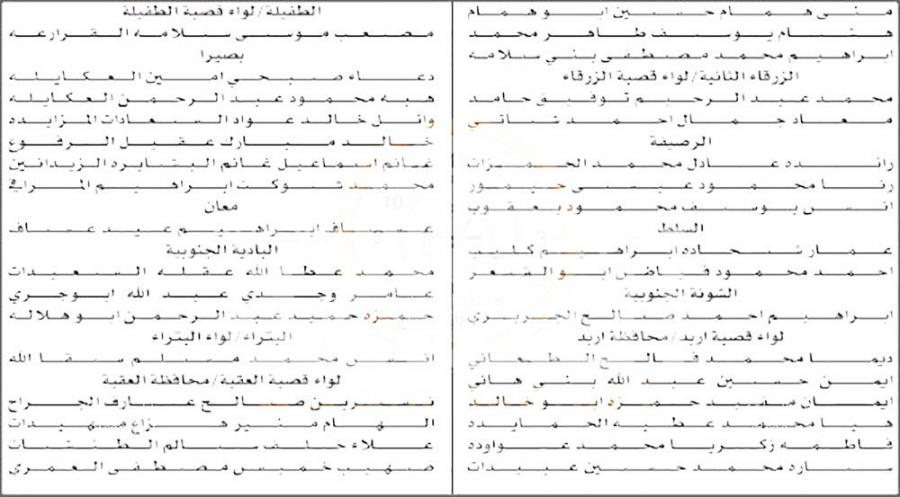 منى همام حسين ابو همام
هشام يوسف طاهر محمد
ابراهيم محمد مصطفى بني سلامه
الزرقاء الثانية/لواء قصبة الزرقاء
محمد عبد الرحيم توفيق حامد
معاذ جمال احمد شناتي
الرصيفة
رانده عادل محمد الحمزات
رنا محمود عيسى حيمور
انس يوسف محمود يعقوب
السلط
عمار شحاده ابراهيم كليب
احمد محمود فياض ابو الشعر
الشونة الجنوبية
ابراهيم احمد صالح الجريري
لواء قصبة اربد/محافظة اربد
ديما محمد فالح الطعاني
ايمن حسين عبد الله بني هاني
ايمان مفيد حمزه ابو خالد
هيا محمد عطيه الحمايده
فاطمه زكريا محمد عواوده
ساره محمد حسين عبيدات
الطفيلة/لواء قصبة الطفيلة
مصعب موسى سلامه القرارعه
بصيرا
دعاء صبحي امين العكايله
هبه محمود عبد الرحمن العكايله
وائل خالد عواد السعادات المزايده
خالد مبارك عقيل الرفوع
غانم اسماعيل غانم البشايره الزيدانين
محمد شوكت ابراهيم المرافي
معان
عساف ابراهيم عيد عساف
البادية الجنوبية
محمد عطا الله عقله السعيدات
عامر وجدي عبد الله ابوجري
حمزه حميد عبد الرحمن ابو هلاله
البتراء/لواء البتراء
انس محمد مسلم سقا الله
لواء قصبة العقبة/محافظة العقبة
نسرين صالح عارف الجراح
الهام منير هزاع مهيدات
علاء خلف سالم الطشتات
صهيب خميس مصطفى العمري